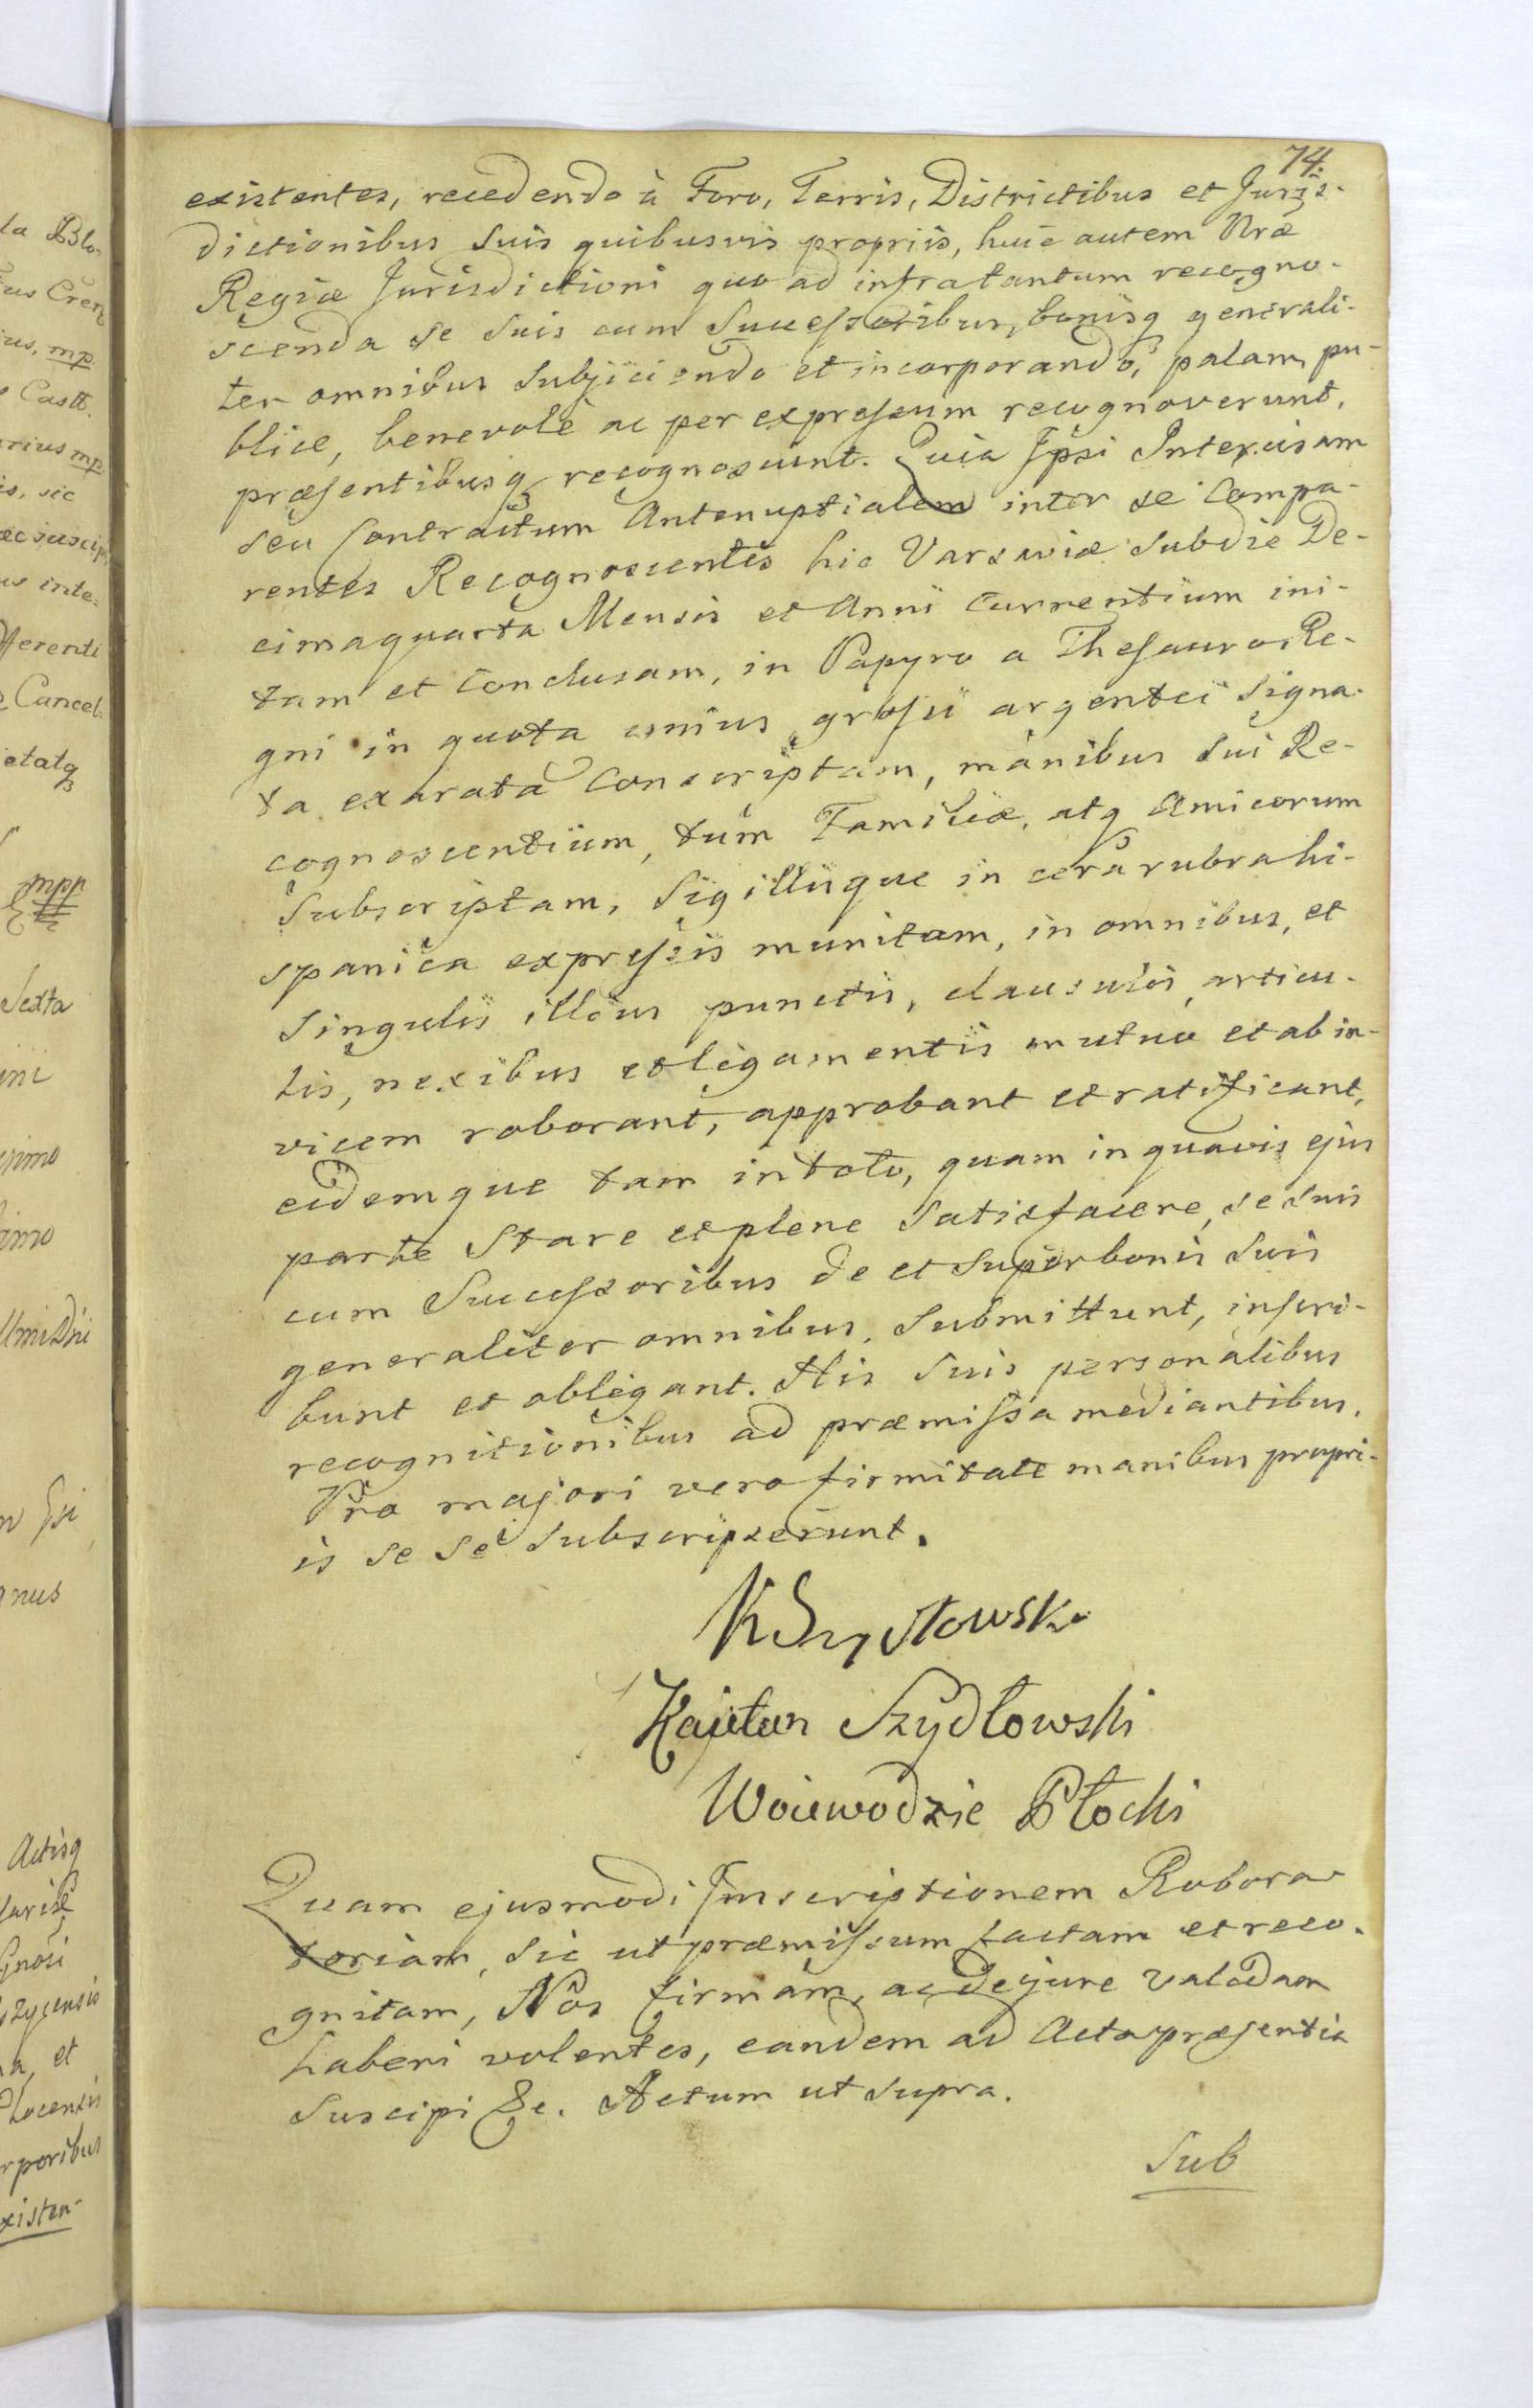 74.
existentes, recedendo à Foro, Terris, Districtibus et Juris-
dictionibus Suis quibusvis propriis, huic autem Nræ
Regiæ Jurisdictioni quo ad infratantum recogno-
scenda se Suis cum Successoribus, bonisq generali-
ter omnibus Subjiciendo et incorporando, palam, pu-
blice, benevolè ac per expressum recognoverunt,
præsentibusq recognoscunt. Quia Ipsi Intercisam
seu Contractum Antenuptialem inter se Compa-
rentes Recognoscentes hic Varsaviæ Subdie De-
cimaquarta Mensis et Anni Currentium ini-
tam et Conclusam, in Papyro a Thesauro Re-
gni in quota unius grossi argentei Signa-
ta exarata Conscriptam, manibus Sui Re-
cognoscentium, tùm Familiæ, atq Amicorum
Subscriptam, Sigillisque in cera rubra hi-
spanica expressis munitam, in omnibus, et
Singulis illius punctis, clausulis, articu-
lis, nexibus et ligamentis mutuo et ab in-
vicem roborant, approbant et ratificant,
eidemque tam intoto, quam in quavis ejus
parte Stare et plene Satisfacere, se Suis
cum Successoribus de et Super bonis Suis
generaliter omnibus, Submittunt, inscri-
bunt et obligant. His Suis personalibus
recognitionibus ad præmissa mediantibus.
Pro majori vero firmitate manibus propri-
is se se Subscripserunt.
Kajetan Szydłowski
Woiewodzic Płocki
Quam ejusmodi Inscriptionem Robora-
toriam, Sic ut præmissum factam et reco-
gnitam, Nos firmam, ac de jure validam
haberi volentes, eandem ad Acta præsentia
Suscipi &c. Actum ut Supra.
Sub